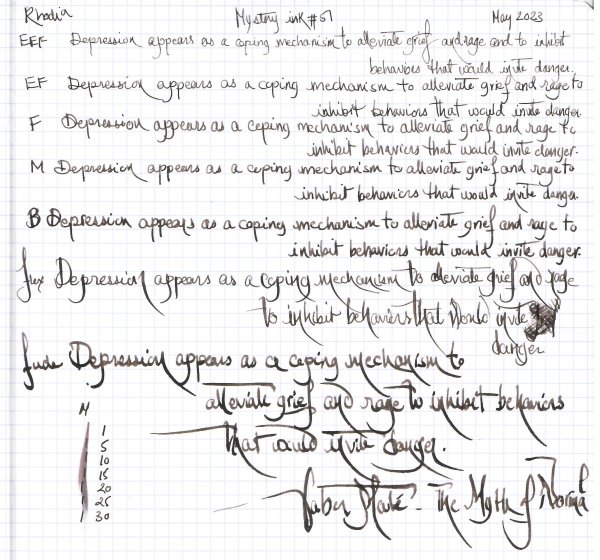 Rhodia Mystery ink #51 May 2023
EEF Depression appears as a coping mechanism to alleviate grief and rage and to inhibit
behaviors that would invite danger.
EF Depression appears as a coping mechanism to alleviate grief and rage to
inhibit behaviors that would invite danger.
F Depression appears as a coping mechanism to alleviate grief and rage to
inhibit behaviors that would invite danger.
M Depression appears as a coping mechanism to alleviate grief and rage to
inhibit behaviors that would invite danger.
B Depression appears as a coping mechanism to alleviate grief and rage to
inhibit behaviors that would invite danger.
flex Depression appears as a coping mechanism to alleviate grief and rage
to inhibit behaviors that would invite
danger
fude Depression appears as a coping mechanism to
alleviate grief and rage to inhibit behaviors
that would invite danger.
Gabor Maté - The Myth of Normal
M
1
5
10
15
20
25
30